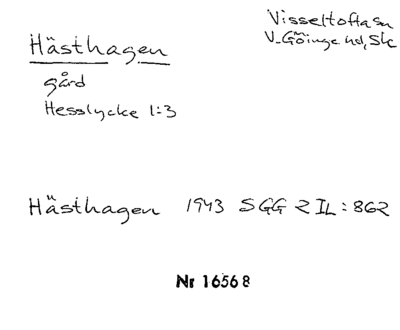 Hästhagen
Visseltofta sn
V. Göinge hd, Sk
gård
Hesslycke 1:3
Hästhagen 1943 SGG 2 IL:862
Nr 16568